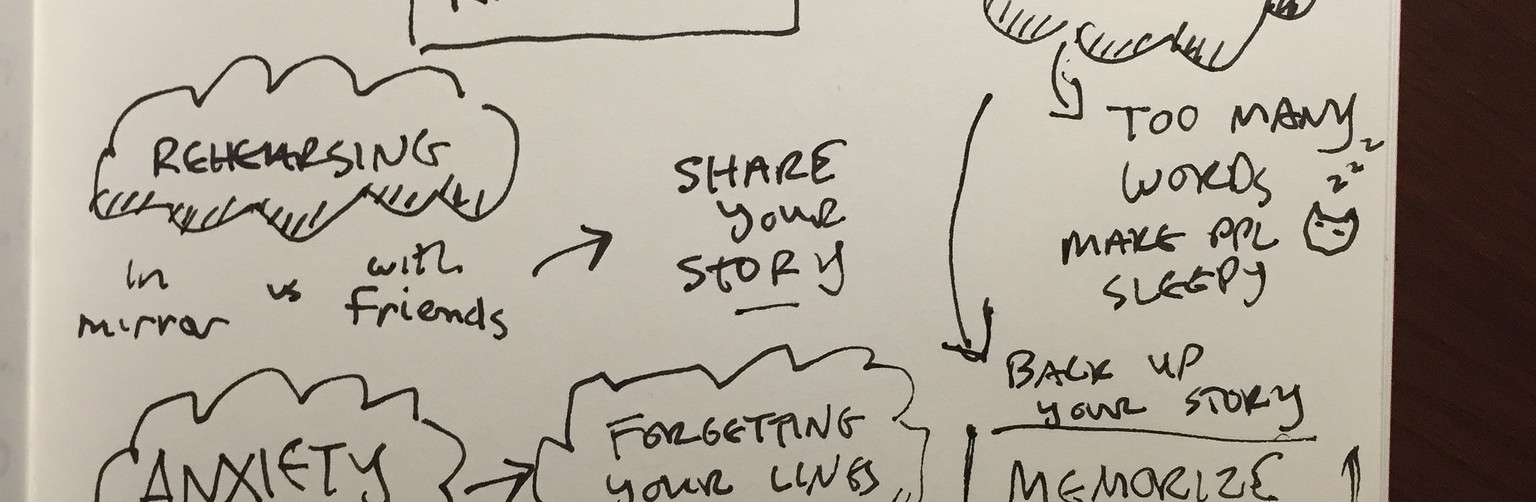 REHEARSING
in mirror vs with friends
SHARE
your
STORY
TOO MANY
WORDS
MAKE PPL
SLEEPY
zzz
BACK UP
your STORY
ANXIETY
FORGETTING
your LINES
MEMORIZE